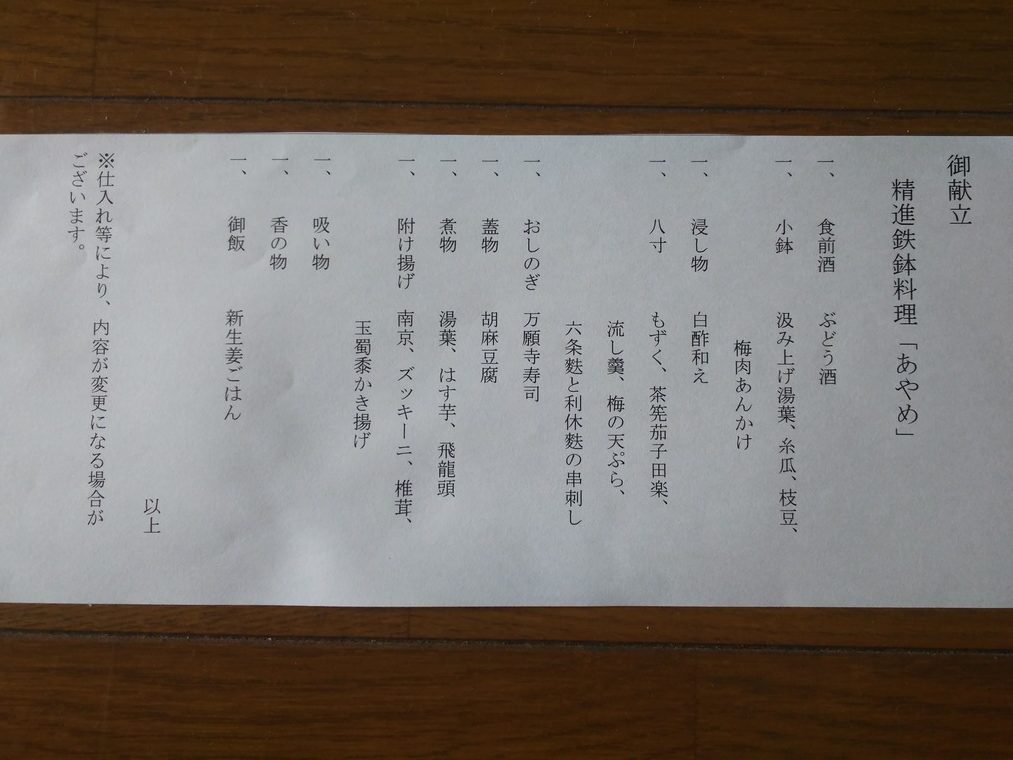 御献立
精進鉄鉢料理「あやめ」
一、 食前酒 ぶどう酒
一、 小鉢 汲み上げ湯葉、糸瓜、枝豆、
梅肉あんかけ
一、 浸し物 白酢和え
一、 八寸 もずく、茶筅茄子田楽、
流し羹、梅の天ぷら、
六条麩と利休麩の串刺し
一、 おしのぎ 万願寺寿司
一、 蓋物 胡麻豆腐
一、 煮物 湯葉、はす芋、飛龍頭
一、 附け揚げ 南京、ズッキーニ、椎茸、
玉蜀黍かき揚げ
一、 吸い物
一、 香の物
一、 御飯 新生姜ごはん
以上
※仕入れ等により、内容が変更になる場合が
ございます。